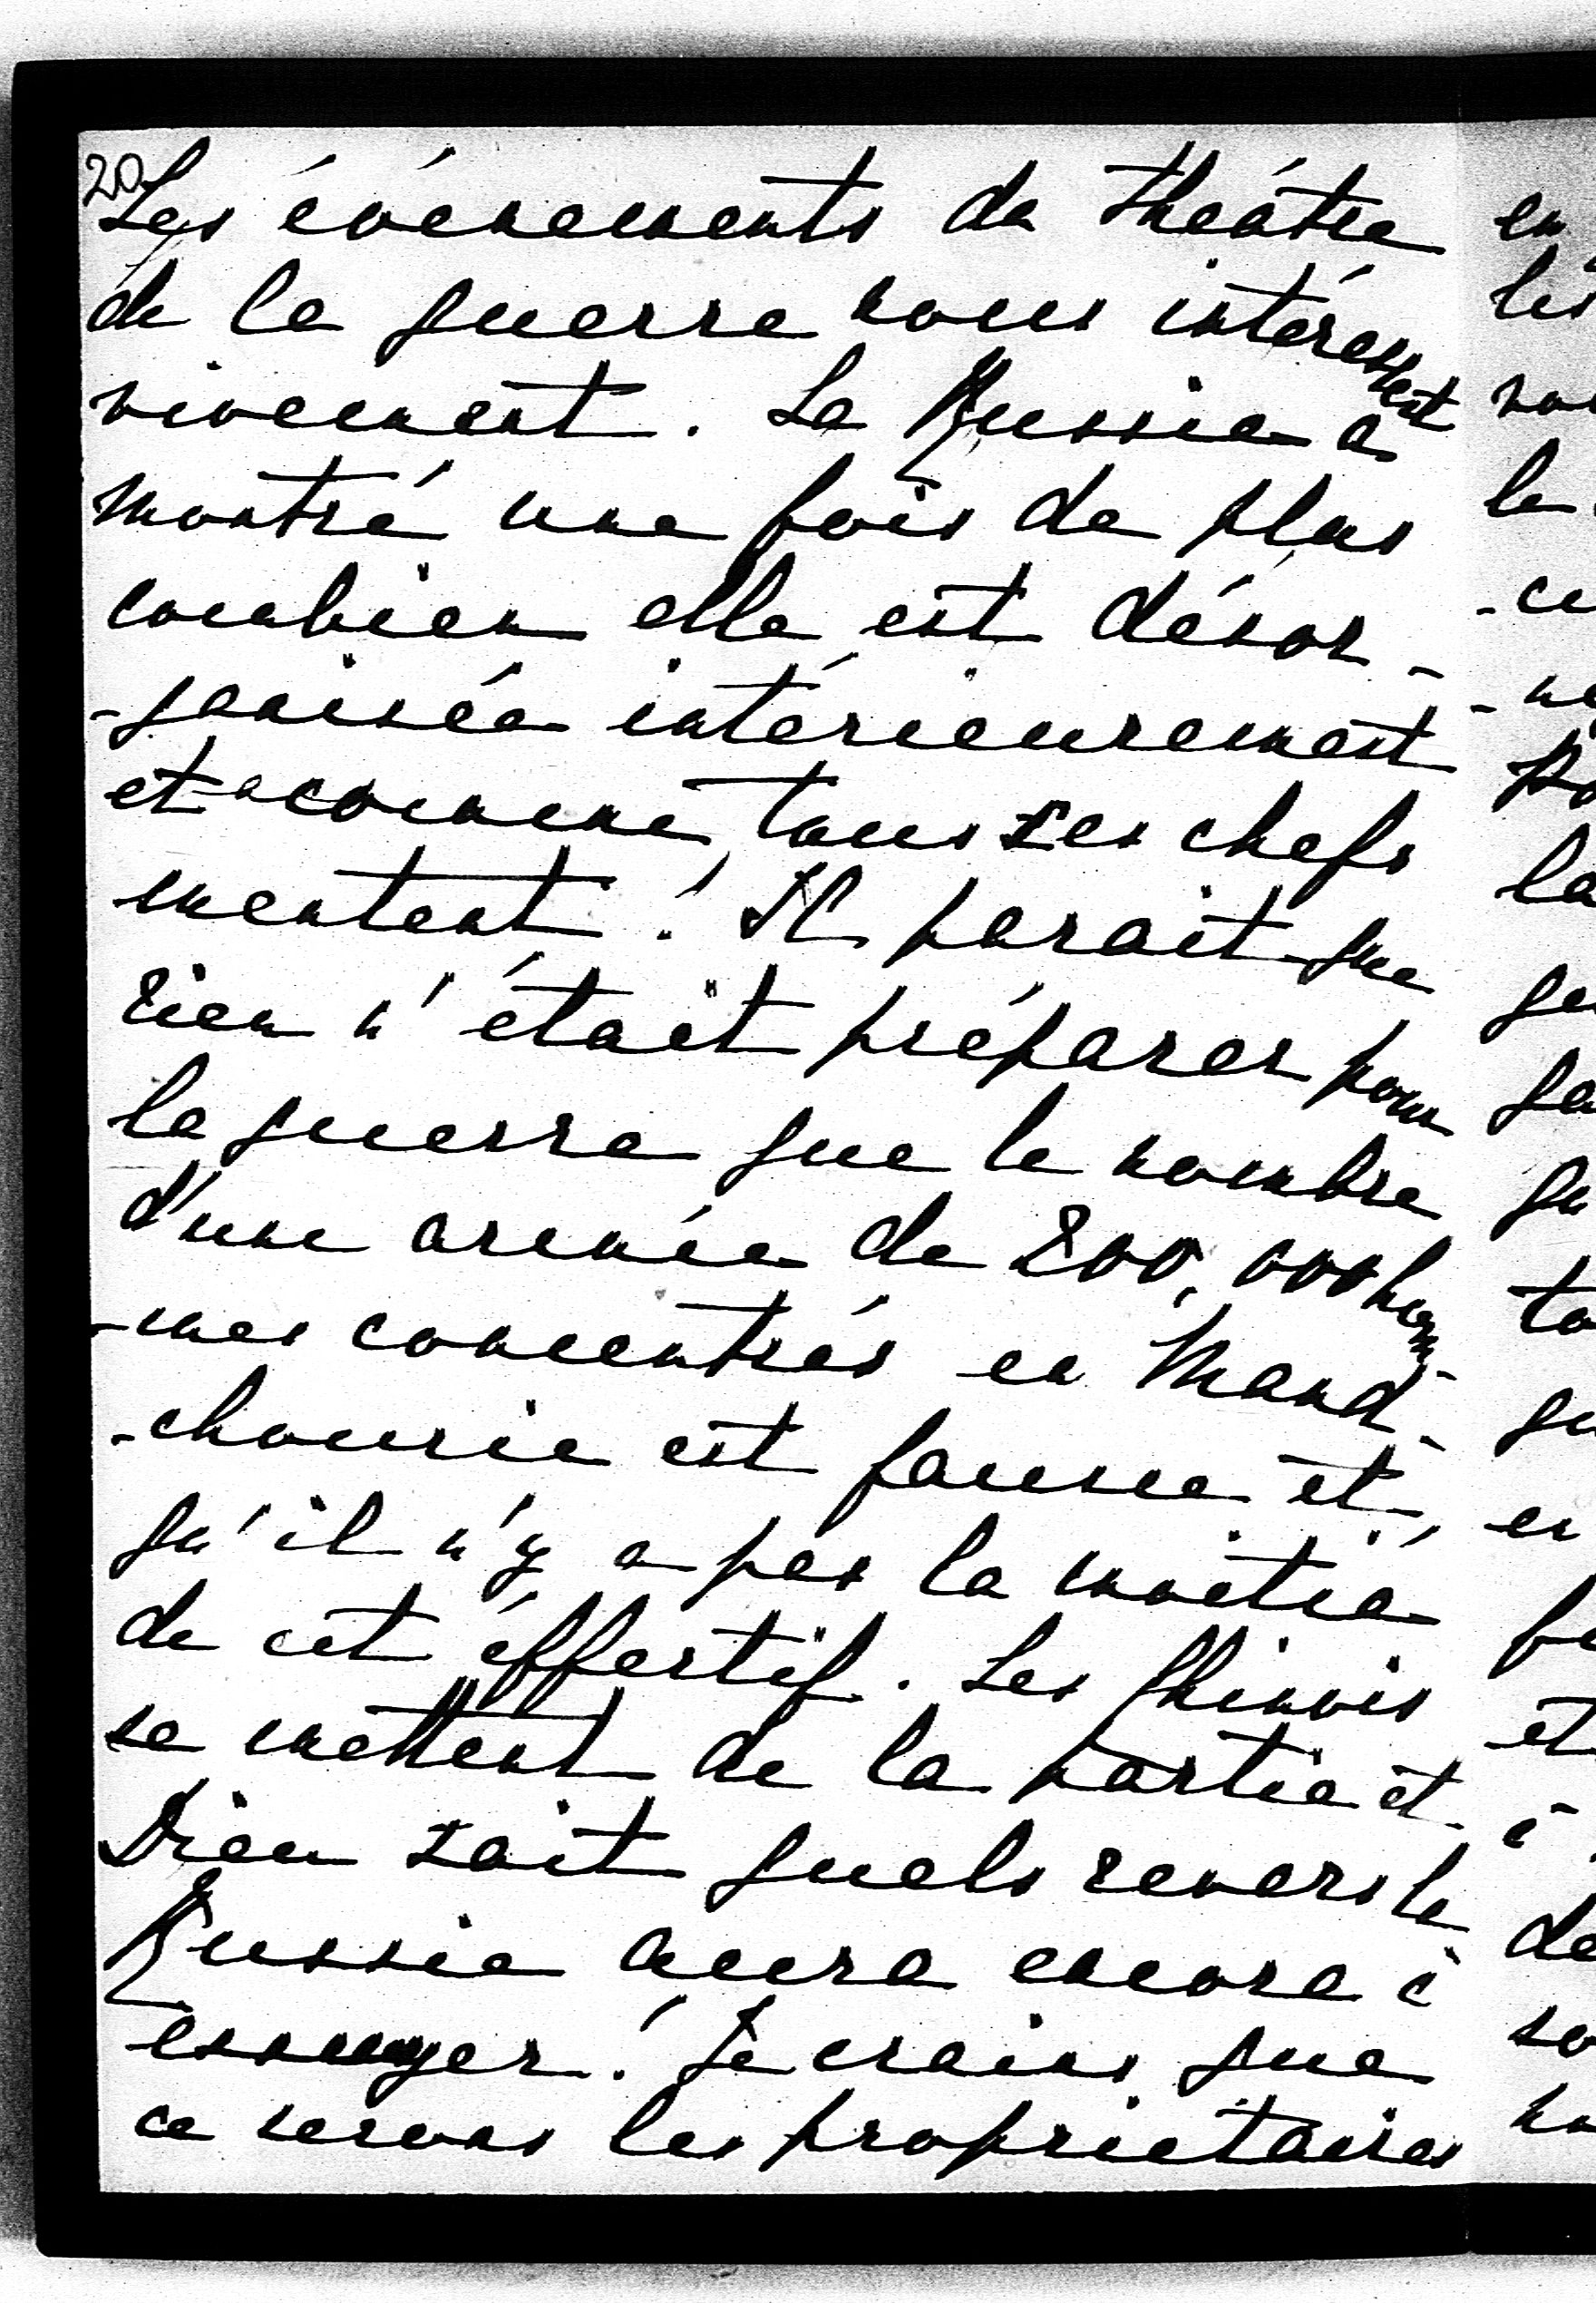 20
Les événements de théâtre
de la guerre nous intéressent
vivement. La Russie a
montré une fois de plus
combien elle est désor-
-ganisée intérieurement
et comme tous ses chefs
mentent! Il parait que
rien n'était préparer pour
la guerre que le nombre
d'une armée de 200,000 hom-
-mes concentrés en Mand-
-chourie est fausse et
qu'il n'y a pas la moitié
de cet éffectif. Les Chinois
se mettent de la partie et
Dieu sait quels revers la
Russie aura encore à
essuyer! Je crains que
ce serons les propriétaires